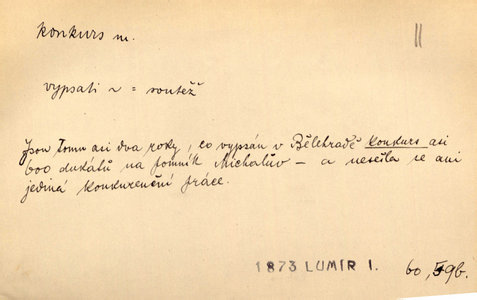 konkurs m.
11
vypsati ~ = soutěž
Jsou tomu asi dva roky, co vypsán v Bělehradě konkurs asi
600 dukátů na pomník Michalův — a nesešla se ani
jediná konkurenční práce.
1873 LUMÍR I. 60, 596.